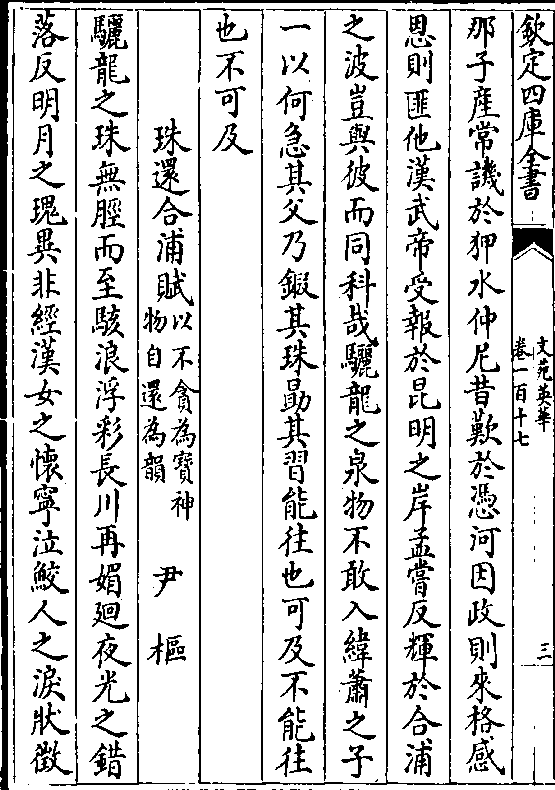 欽定四庫全書
文苑英華
卷一百十七
三
那子產常譏於狎水仲尼昔歎於憑河因政則來格感
恩則匪他漢武帝受報於昆明之岸孟嘗反輝於合浦
之波豈與彼而同科哉驪龍之泉物不敢入緯蕭之子
一以何急其父乃鍜其珠勗其習能往也可及不能往
也不可及
珠還合浦賦以不貪為寶神物自還為韻 尹樞
驪龍之珠無脛而至駭浪浮彩長川再媚廻夜光之錯
落反明月之瓌異非經漢女之懷寧泣鮫人之淚狀徵